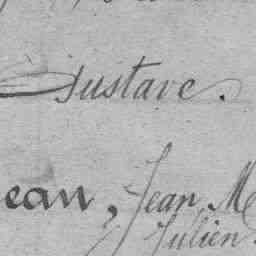 Gustave.
ean, Jean M
Julien